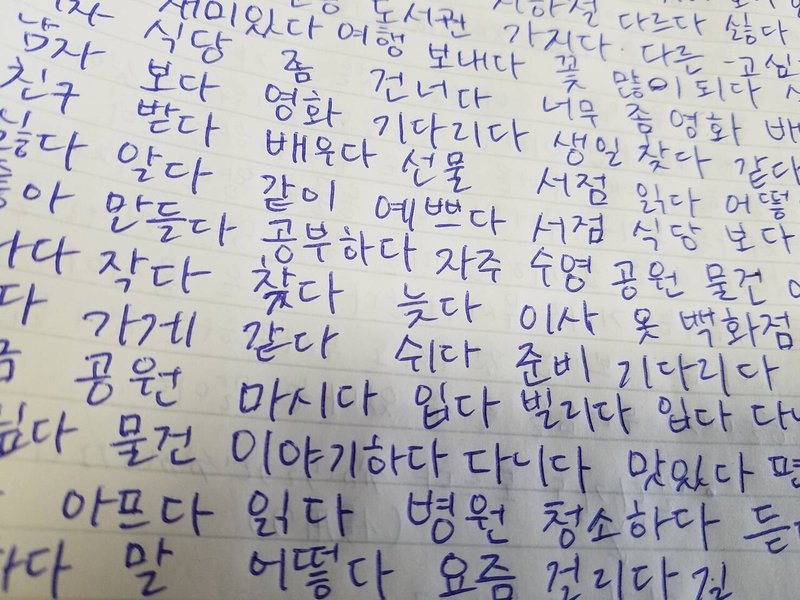 도서관 가지다 다른
재미있다 여행 보내다 꽃 많이 되다
남자 식당 좀 건너다 너무 좀 영화 배
친구 보다 영화 기다리다 생일 찾다 같다
받다 배우다 선물 서점 읽다 어떻
좋아 알다 같이 예쁘다 서점 식당 보다
만들다 공부하다 자주 수영 공원 물건
작다 찾다 늦다 이사 옷 백화점
다 가게 같다 쉬다 준비 기다리다
공원 마시다 입다 빌리다 입다 다니
물건 이야기하다 다니다 맛있다 편
아프다 읽다 병원 청소하다 듣
말 어떻다 요즘 걸리다 길